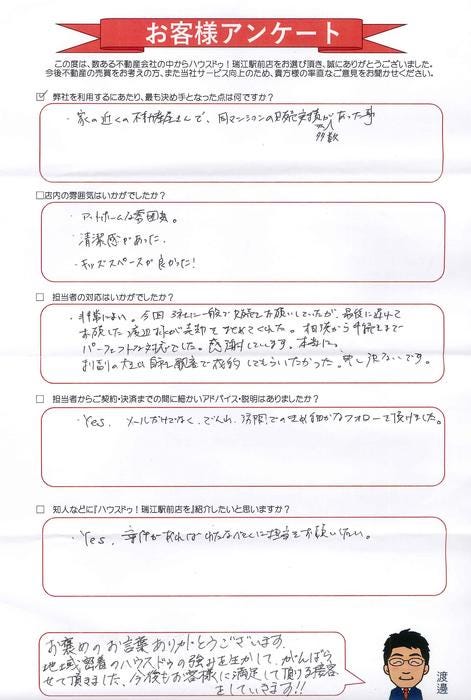 お客様アンケート
この度は、数ある不動産会社の中からハウスドゥ！瑞江駅前店をお選び頂き、誠にありがとうございました。
今後不動産の売買をお考えの方、また当社サービス向上のため、貴方様の率直なご意見をお聞かせください。
弊社を利用するにあたり、最も決め手となった点は何ですか？
・家の近くの不動産屋さんで、同マンションの販売実績が多数あった事
店内の雰囲気はいかがでしたか？
・アットホームな雰囲気。
・清潔感があった。
・キッズスペースが良かった！
担当者の対応はいかがでしたか？
・非常によい。今回 3社に一般で売却をお願いしていたが、最後に遅れて
お願いした渡辺様が売却を決めてくれた。相談から手続きまで
パーフェクトな対応でした。感謝しています。本当に。
で成約してもらいたかった。申し訳ないです。
担当者からご契約・決済までの間に細かいアドバイス・説明はありましたか？
・Yes. メールだけでなく、でんわ、訪問での細かなフォローして頂けました。
知人などに『ハウスドゥ！瑞江駅前店を』紹介したいと思いますか？
・Yes. 担当をお願いしたい。
お褒めのお言葉ありがとうございます。
地域密着のハウスドゥの強みを生かして、がんばら
せて頂きました。今後もお客様に満足して頂ける接客
をしていきます!!
渡邊